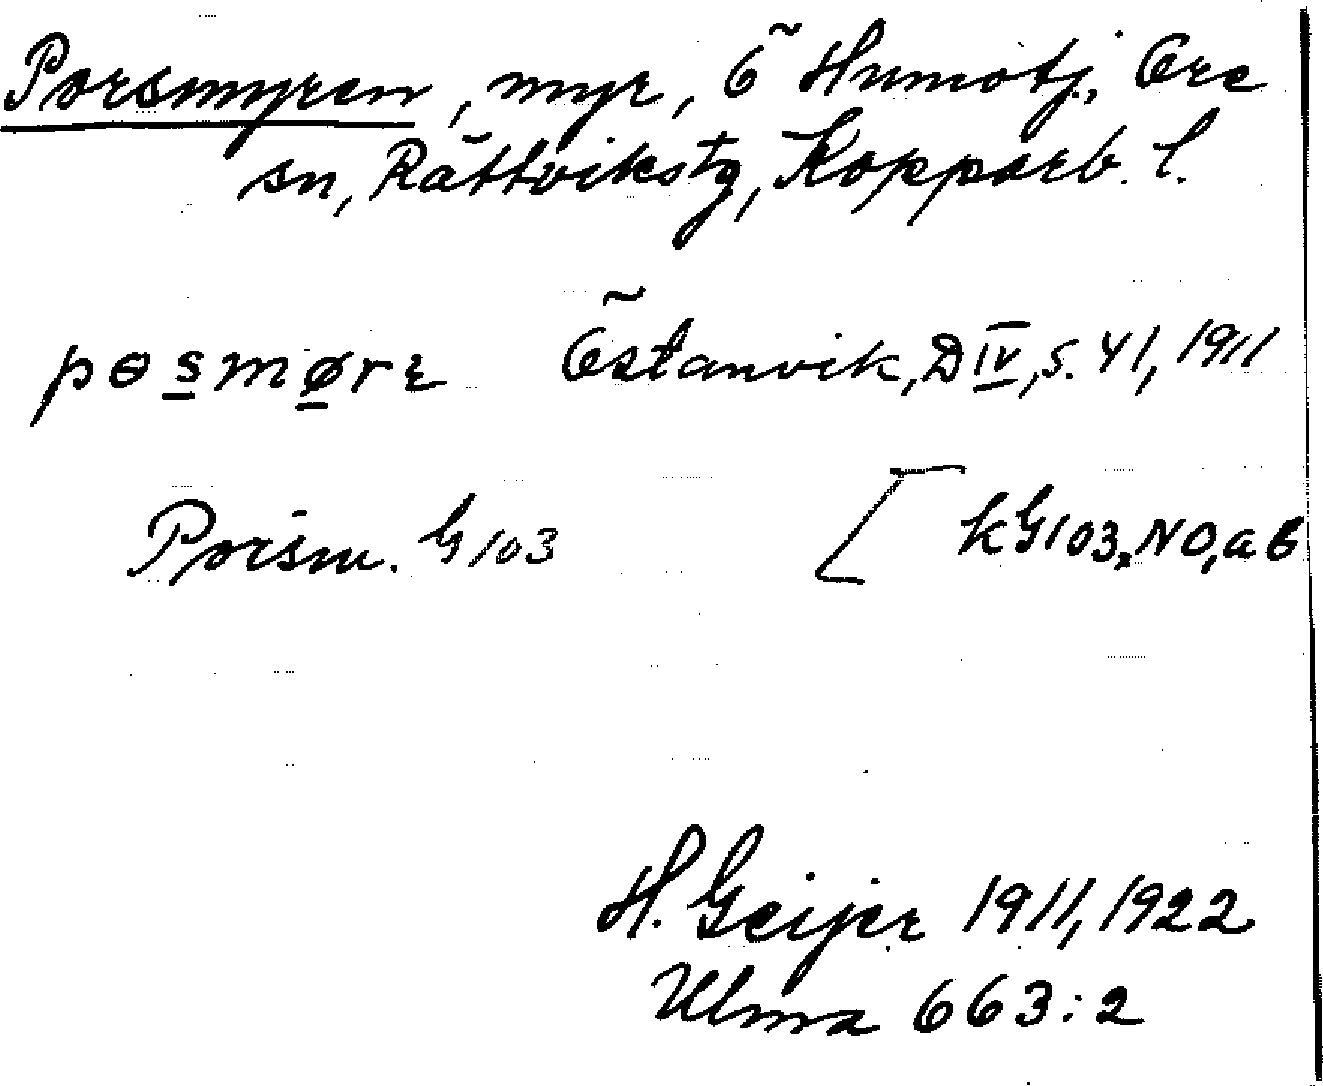 Porsmyren, myr, Ö Humotj., Ore
sn, Rättvikstg, Kopparb. l.
pɵsmørɛ Östanvik, D IV, s. 41, 1911
Porsm. G 103 [ kG103, NO, ab
H. Geijer 1911, 1922
Ulma 663:2